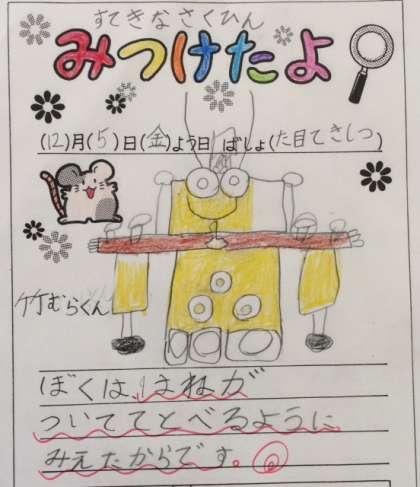 すてきなさくひん
みつけたよ
(12)月(5)日(金)よう日 ばしょ(た目てきしつ)
竹むらくん
ぼくは、はねが
ついててとべるように
みえたからです。